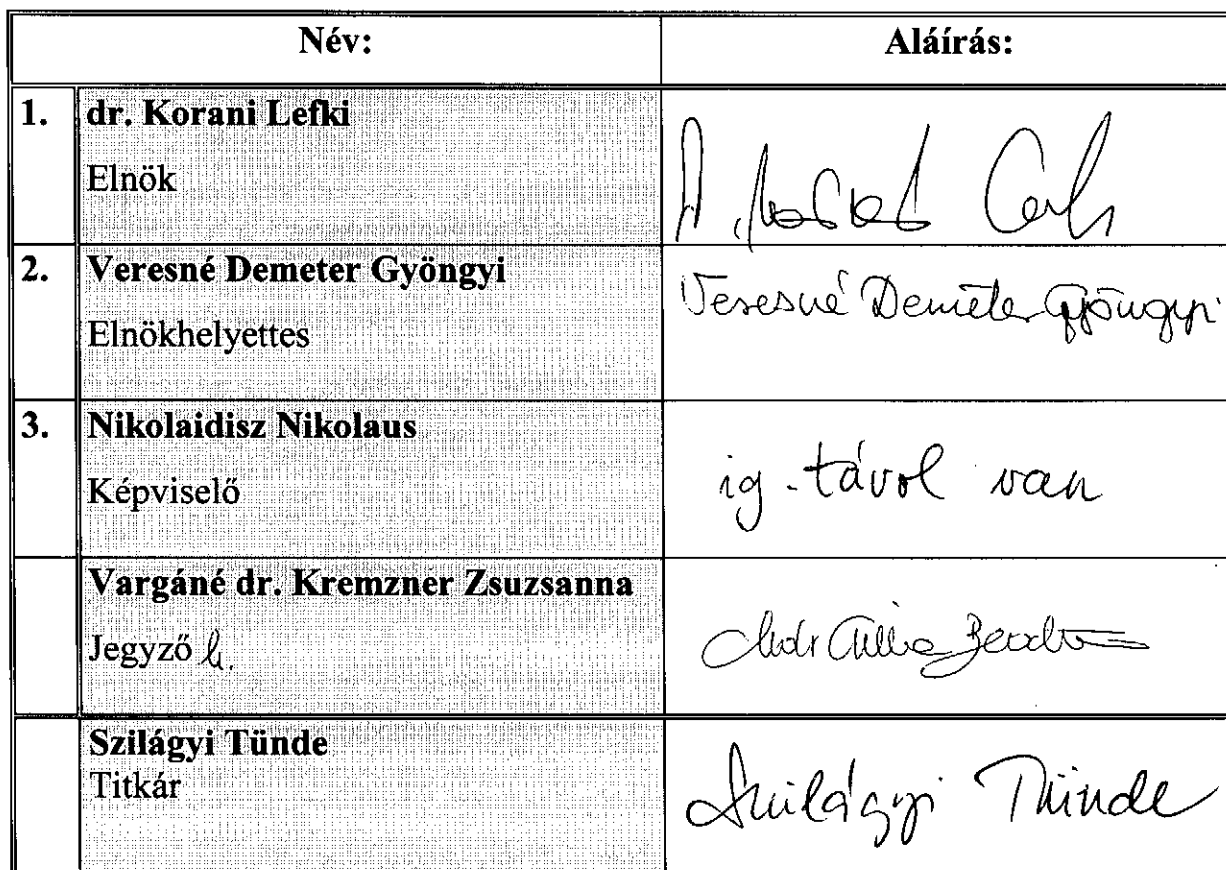 Név: Aláírás:
1. dr. Korani Lefki
Elnök
2. Veresné Demeter Gyöngyi Veresné Demeter Gyöngyi
Elnökhelyettes
3. Nikolaidisz Nikolaus
Képviselő ig. távol van
Vargáné dr. Kremzner Zsuzsanna
Jegyző h.
Szilágyi Tünde
Titkár Szilágyi Tünde